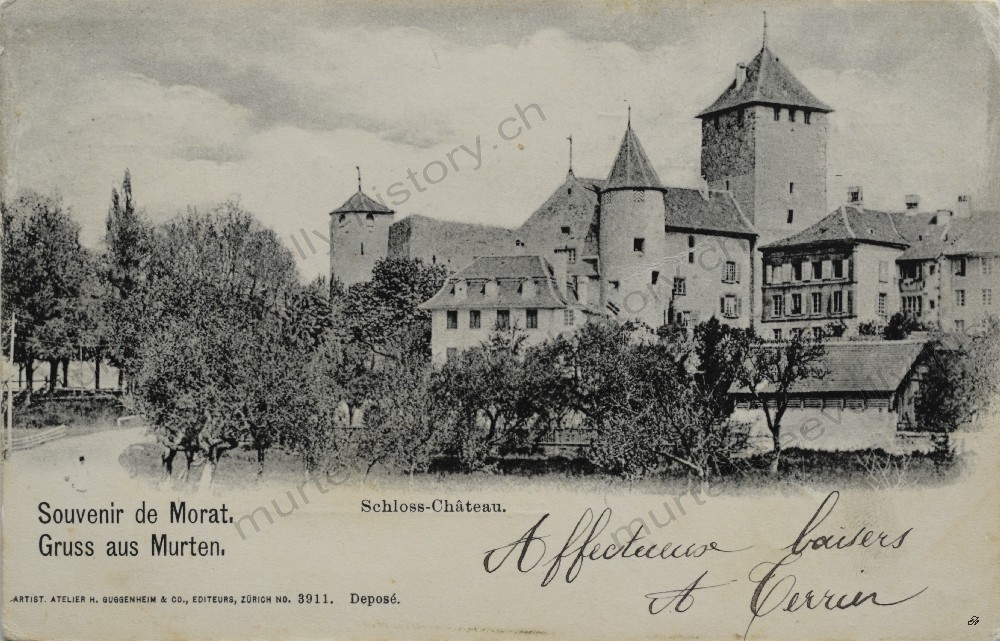 Schloss-Château.
Souvenir de Morat.
Gruss aus Murten.
Affectueuse baisers
A Terrier
ARTIST. ATELIER H. GUGGENHEIM & CO., EDITEURS, ZÜRICH NO. 3911. Deposé.